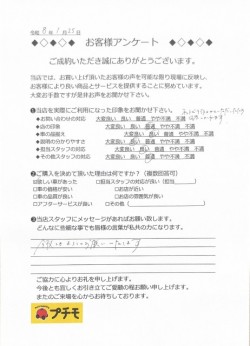 お客様アンケート
ご成約いただき誠にありがとうございます。
当店では、お買い上げ頂いたお客様の声を可能な限り現場に反映し、
お客様により良い商品とサービスを提供することに努めています。
大変お手数ですが是非お声をお聞かせ下さい。
❶当店を実際にご利用になった印象をお聞かせ下さい。
●お問い合わせの対応 大変良い 良い 普通 やや不満 不満
●店の印象 大変良い 良い 普通 やや不満 不満
●車の品揃え 大変良い 良い 普通 やや不満 不満
●説明の分かりやすさ 大変良い 良い 普通 やや不満 不満
●担当スタッフの対応 大変良い 良い 普通 やや不満 不満
●その他スタッフの対応 大変良い 良い 普通 やや不満 不満
❷ご購入を決めて頂いた理由は何ですか?(複数回答可)
□欲しい車があった □担当スタッフの対応が良い(担当 )
□車の価格が安い □お店が近い
□車の品質が良い □お店の雰囲気が良い
□アフターサービスが良い □その他( )
❸当店スタッフにメッセージがあればお願い致します。
どんなに些細な事でも皆様の言葉が私共の力になります。
ご協力に心よりお礼を申し上げます。
今後とも宜しくお引き立てご愛顧の程お願い申し上げます。
またのご来場を心からお待ちしております。
プチモ